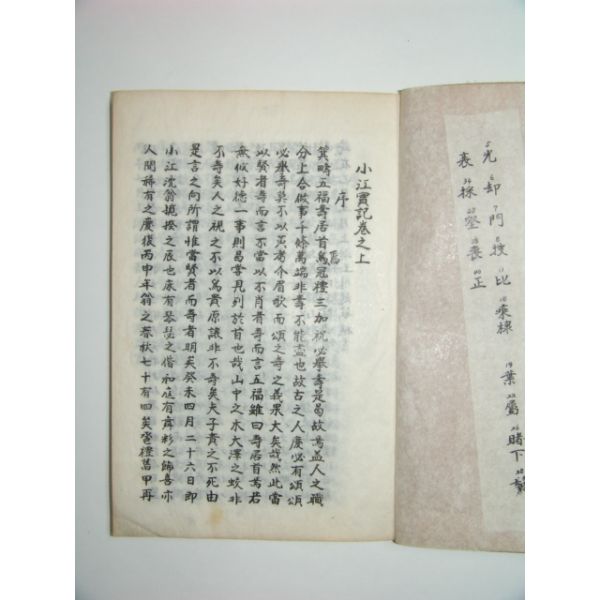 小江實記卷之上
序
箕疇五福壽居首焉冠禮三加祝必舉壽是曷故焉蓋人之職
分上合做事千條萬端非壽不能盡也故古之人慶必有頌頌
必舉壽莫不以黃耇介眉歌而頌之壽之義果大矣哉然此當
以賢者壽而言不當以不肖者壽而言五福雖曰壽居首焉若
無攸好德一事則曷嘗見列於首也哉山中之木大澤之蚊非
不壽矣人之視之不以爲貴原讓非不壽矣夫子責之不死由
是言之向所謂惟當賢者而壽者明矣癸未四月二十六日即
小江沈翁㨾揆之辰也床有琴瑟之偕和庭有舞彩之餙喜亦
人間稀有之慶後丙申年翁之春秋七十有四矣巹禮舊甲再
光 却 門 授 比 乘 棵 葉 鷰 賭 下
衷 採 坚 衷 正